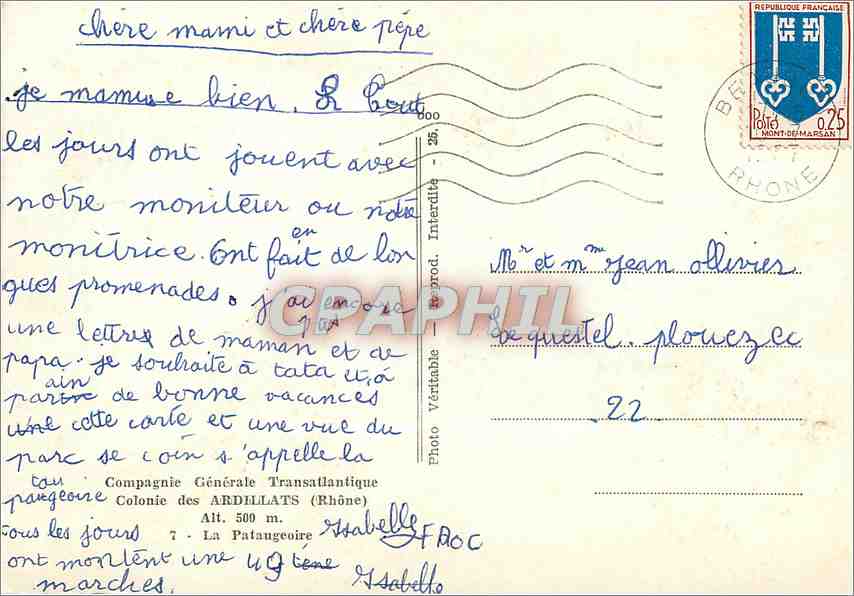 chère mami et chère pépé
je mamuse bien. Tout
les jours ont jouent avec
notre moniteur ou notre
monitrice. Ont en fait de lon
gues promenades. j'ai encore
pas
une lettre de maman et de
papa. je souhaite à tata et à
parain de bonne vacances
cette carte et une vue du
parc se coin s'appelle la
pataugeoire
tous les jours
ont montent une
marches.
Isabelle
Isabelle
Compagnie Générale Transatlantique
Colonie des ARDILLATS (Rhône)
Alt. 500 m.
7 - La Pataugeoire
Photo Véritable — Reprod. Interdite - 25.
CPAPHIL
REPUBLIQUE FRANÇAISE
Postes 0,25
MONT-DE-MARSAN
RHONE
Mr et mme jean ollivier
Le questel. plouezec
22.